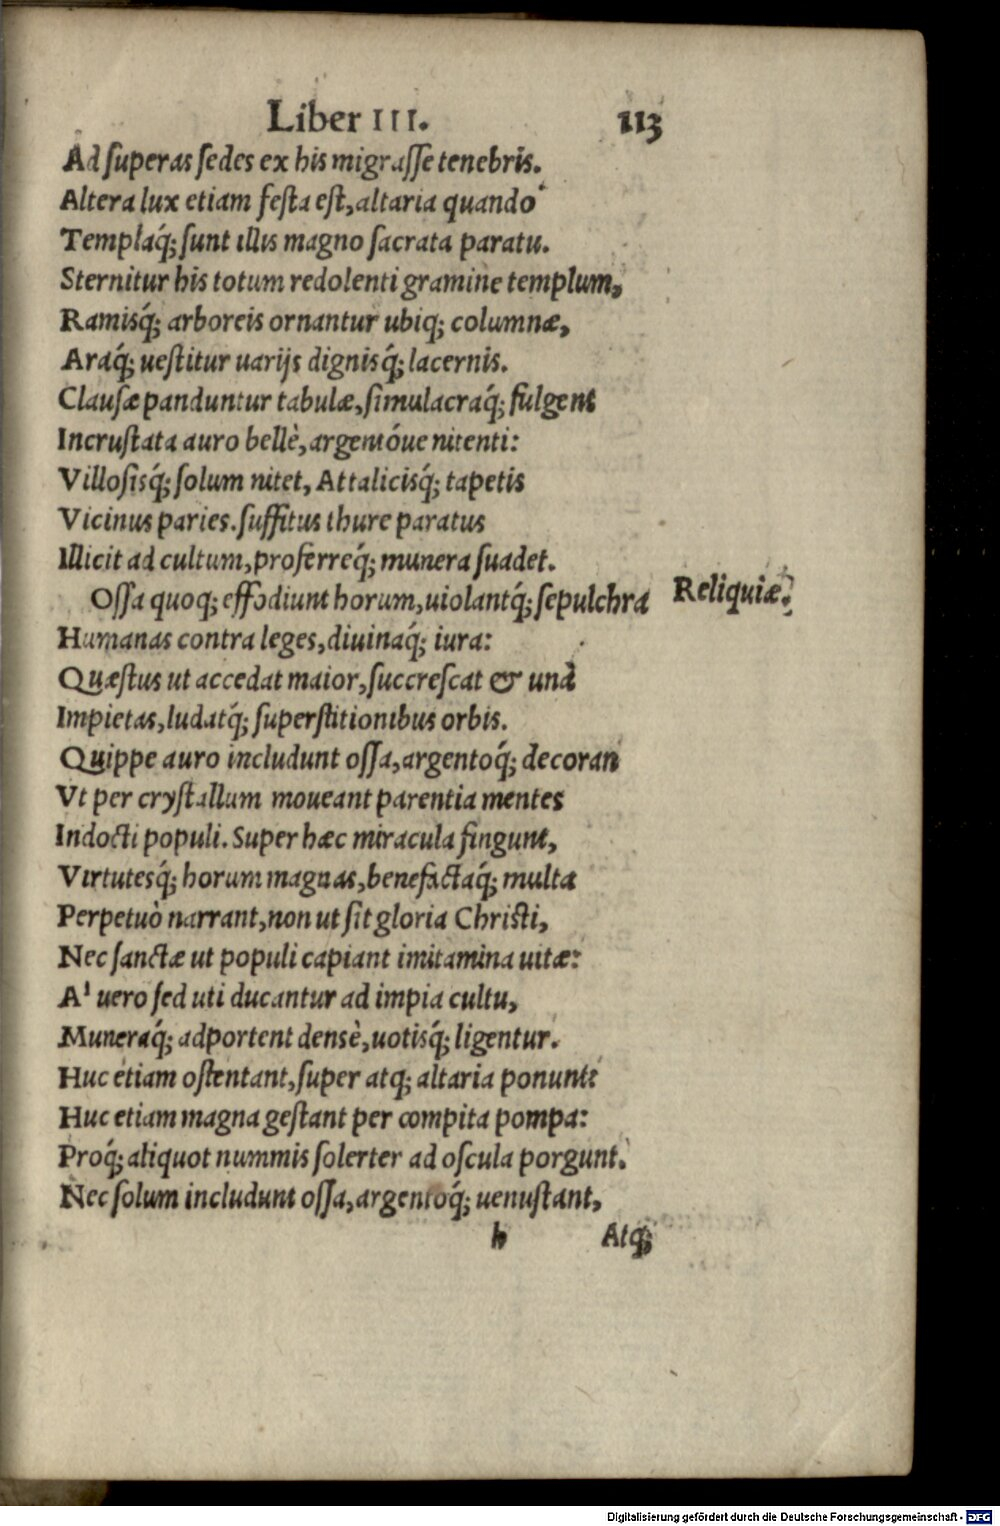 Liber III. 113
Ad ſuperas ſedes ex his migraſſe tenebris.
Altera lux etiam feſta eſt, altaria quando
Templaq́; ſunt illis magno ſacrata paratu.
Sternitur his totum redolenti gramine templum,
Ramisq́; arboreis ornantur ubiq; columnæ,
Araq́; ueſtitur uarijs dignisq́; lacernis.
Clauſæ panduntur tabulæ, ſimulacraq́; fulgent
Incruſtata auro bellè, argentóue nitenti:
Villoſisq́; ſolum nitet, Attalicisq́; tapetis
Vicinus paries. ſuffitus thure paratus
Illicit ad cultum, proferreq́; munera ſuadet.
Oſſa quoq; effodiunt horum, uiolantq́; ſepulchra
Reliquiæ.
Humanas contra leges, diuinaq́; iura:
Quæſtus ut accedat maior, ſuccreſcat & unà
Impietas, ludatq́; ſuperſtitionibus orbis.
Quippe auro includunt oſſa, argentoq́; decoran
Vt per cryſtallum moueant parentia mentes
Indocti populi. Super hæc miracula fingunt,
Virtutesq́; horum magnas, benefactaq́; multa
Perpetuò narrant, non ut ſit gloria Chriſti,
Nec ſanctæ ut populi capiant imitamina uitæ:
At uero ſed uti ducantur ad impia cultu,
Muneraq́; adportent denſè, uotisq́; ligentur.
Huc etiam oſtentant, ſuper atq; altaria ponunt:
Huc etiam magna geſtant per compita pompa:
Proq́; aliquot nummis ſolerter ad oſcula porgunt.
Nec ſolum includunt oſſa, argentoq́; uenuſtant,
h Atq;
Digitalisierung gefördert durch die Deutsche Forschungsgemeinschaft - DFG